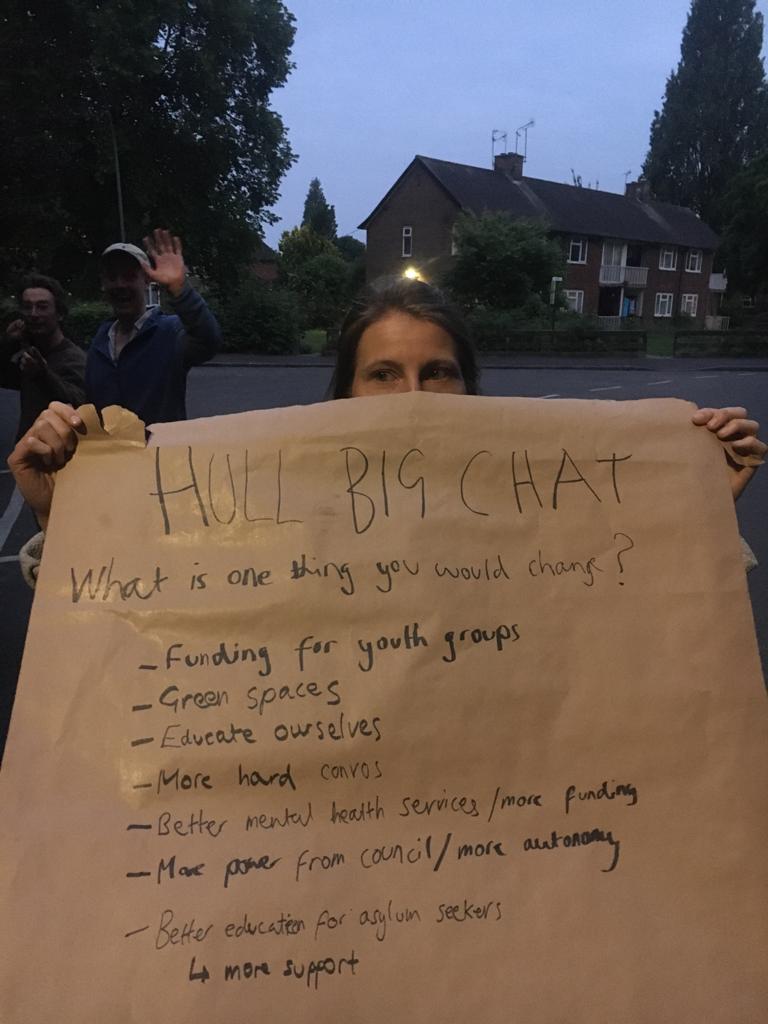 HULL BIG CHAT
What is one thing you would change?
- Funding for youth groups
- Green spaces
- Educate ourselves
- More hard convos
- Better mental health services/more funding
- More power from council/more autonomy
- Better education for asylum seekers
↳ more support